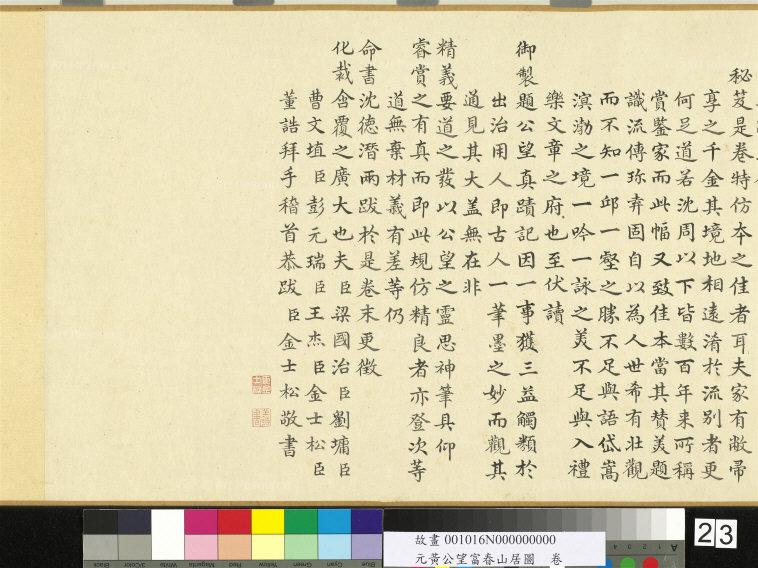 秘笈是卷特仿本之佳者耳夫家有敝帚
享之千金其境地相遠淆於流別者更
何足道若沈周以下皆數百年来所稱
賞鑒家而此幅又致佳本當其賛美題
識流傳珎弆固自以為人世希有壮觀
而不知一邱一壑之勝不足與語岱嵩
溟渤之境一吟一詠之美不足與入禮
樂文章之府也至伏讀
御製題公望真蹟記因一事獲三益觸類於
出治用人即古人一筆墨之妙而觀其
道見其大盖無在非
精義要道之發以公望之靈思神筆具仰
睿賞之有真而即此規仿精良者亦登次等
道無棄材義有差等仍
命書沈德潛兩跋於是卷末更徵
化裁含覆之廣大也夫臣梁國治臣劉墉臣
曹文埴臣彭元瑞臣王杰臣金士松臣
董誥拜手稽首恭跋 臣金士松敬書
故畫 001016N000000000
元黃公望富春山居圖 卷
23
Blue
Cyan
Green
Yellow
Red
Magenta
White
3/Color
Black
A 1 2 3 4